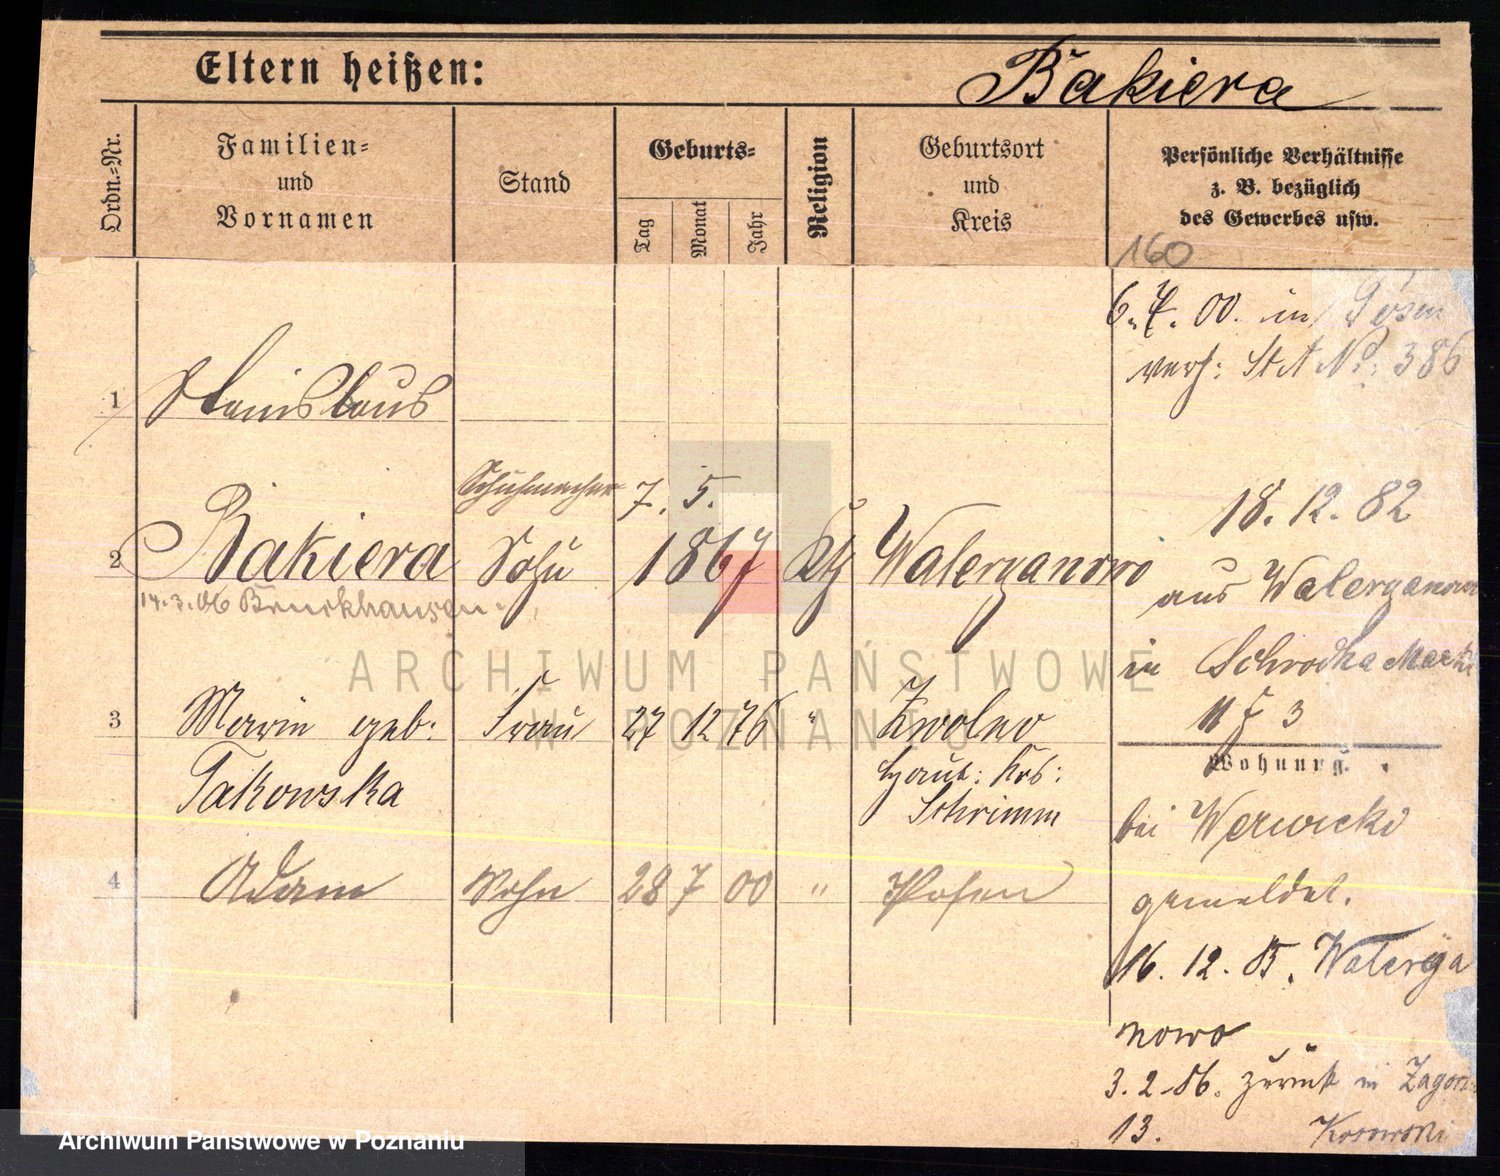 Eltern heißen:
Bakiera
Ordn.-Nr.
Familien=
und
Vornamen
Stand
Geburts=
Tag
Monat
Jahr
Religion
Geburtsort
und
Kreis
Persönliche Verhältnisse
z. B. bezüglich
des Gewerbes usw.
160
6. 7. 00. in Posen
verh: StA No: 386
1 Stanislaus
Schuhmacher 7. 5.
2 Bakiera Sohn 1867 Kth Walerzanowo
14.3.06 Bruckhausen
18. 12. 82
aus Walerzanowo
in Schrodka Markt
11 3
3 Marie geb: Frau 27 12 76 " Zwolno
Takowska Haul: Krs:
Schrimm
Wohnung.
bei Werwicki
gemeldet.
4 Adam Sohn 28 7 00 " Posen
16. 12. 85. Walerza
nowo
3. 2. 86. zurück in Zagorze
13.
ARCHIWUM PAŃSTWOWE
W POZNANIU
Archiwum Państwowe w Poznaniu